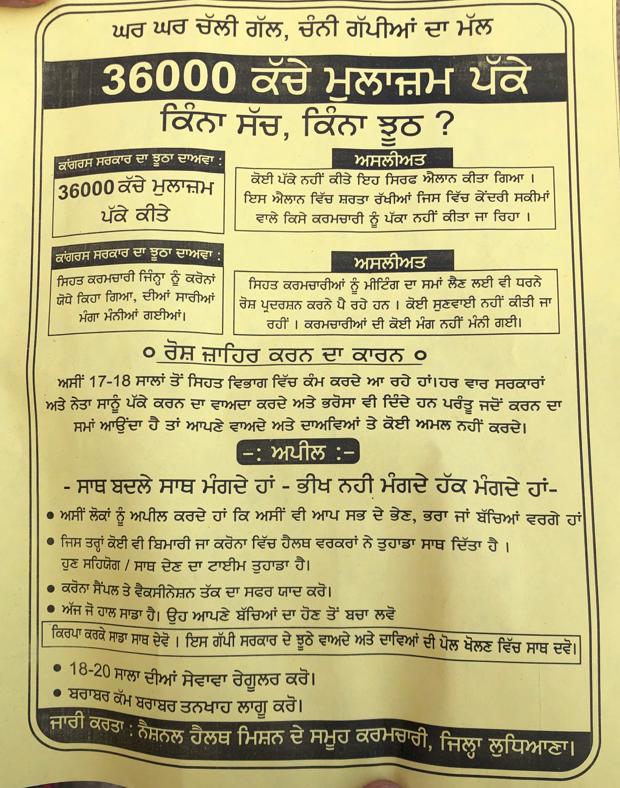 ਘਰ ਘਰ ਚੱਲੀ ਗੱਲ, ਚੰਨੀ ਗੱਪੀਆਂ ਦਾ ਮੱਲ
36000 ਕੱਚੇ ਮੁਲਾਜ਼ਮ ਪੱਕੇ
ਕਿੰਨਾ ਸੱਚ, ਕਿੰਨਾ ਝੂਠ ?
ਕਾਂਗਰਸ ਸਰਕਾਰ ਦਾ ਝੂਠਾ ਦਾਅਵਾ :
36000 ਕੱਚੇ ਮੁਲਾਜ਼ਮ
ਪੱਕੇ ਕੀਤੇ
ਅਸਲੀਅਤ
ਕੋਈ ਪੱਕੇ ਨਹੀਂ ਕੀਤੇ ਇਹ ਸਿਰਫ ਐਲਾਨ ਕੀਤਾ ਗਿਆ ।
ਇਸ ਐਲਾਨ ਵਿੱਚ ਸ਼ਰਤਾ ਰੱਖੀਆਂ ਜਿਸ ਵਿੱਚ ਕੇਂਦਰੀ ਸਕੀਮਾਂ
ਵਾਲੇ ਕਿਸੇ ਕਰਮਚਾਰੀ ਨੂੰ ਪੱਕਾ ਨਹੀਂ ਕੀਤਾ ਜਾ ਰਿਹਾ ।
ਕਾਂਗਰਸ ਸਰਕਾਰ ਦਾ ਝੂਠਾ ਦਾਅਵਾ :
ਸਿਹਤ ਕਰਮਚਾਰੀ ਜਿੰਨ੍ਹਾ ਨੂੰ ਕਰੋਨਾਂ
ਯੋਧੇ ਕਿਹਾ ਗਿਆ, ਦੀਆਂ ਸਾਰੀਆਂ
ਮੰਗਾ ਮੰਨੀਆਂ ਗਈਆਂ।
ਅਸਲੀਅਤ
ਸਿਹਤ ਕਰਮਚਾਰੀਆਂ ਨੂੰ ਮੀਟਿੰਗ ਦਾ ਸਮਾਂ ਲੈਣ ਲਈ ਵੀ ਧਰਨੇ
ਰੋਸ਼ ਪ੍ਰਦਰਸ਼ਨ ਕਰਨੇ ਪੈ ਰਹੇ ਹਨ । ਕੋਈ ਸੁਣਵਾਈ ਨਹੀਂ ਕੀਤੀ ਜਾ
ਰਹੀਂ । ਕਰਮਚਾਰੀਆਂ ਦੀ ਕੋਈ ਮੰਗ ਨਹੀਂ ਮੰਨੀ ਗਈ।
੦ ਰੋਸ਼ ਜ਼ਾਹਿਰ ਕਰਨ ਦਾ ਕਾਰਨ ੦
ਅਸੀਂ 17-18 ਸਾਲਾਂ ਤੋਂ ਸਿਹਤ ਵਿਭਾਗ ਵਿੱਚ ਕੰਮ ਕਰਦੇ ਆ ਰਹੇ ਹਾਂ।ਹਰ ਵਾਰ ਸਰਕਾਰਾਂ
ਅਤੇ ਨੇਤਾ ਸਾਨੂੰ ਪੱਕੇ ਕਰਨ ਦਾ ਵਾਅਦਾ ਕਰਦੇ ਅਤੇ ਭਰੋਸਾ ਵੀ ਦਿੰਦੇ ਹਨ ਪਰੰਤੂ ਜਦੋਂ ਕਰਨ ਦਾ
ਸਮਾਂ ਆਉਂਦਾ ਹੈ ਤਾਂ ਆਪਣੇ ਵਾਅਦੇ ਅਤੇ ਦਾਅਵਿਆਂ ਤੇ ਕੋਈ ਅਮਲ ਨਹੀਂ ਕਰਦੇ।
–: ਅਪੀਲ :–
- ਸਾਥ ਬਦਲੇ ਸਾਥ ਮੰਗਦੇ ਹਾਂ - ਭੀਖ ਨਹੀ ਮੰਗਦੇ ਹੱਕ ਮੰਗਦੇ ਹਾਂ-
• ਅਸੀਂ ਲੋਕਾਂ ਨੂੰ ਅਪੀਲ ਕਰਦੇ ਹਾਂ ਕਿ ਅਸੀਂ ਵੀ ਆਪ ਸਭ ਦੇ ਭੇਣ, ਭਰਾ ਜਾਂ ਬੱਚਿਆਂ ਵਰਗੇ ਹਾਂ
• ਜਿਸ ਤਰ੍ਹਾਂ ਕੋਈ ਵੀ ਬਿਮਾਰੀ ਜਾ ਕਰੋਨਾ ਵਿੱਚ ਹੈਲਥ ਵਰਕਰਾਂ ਨੇ ਤੁਹਾਡਾ ਸਾਥ ਦਿੱਤਾ ਹੈ ।
ਹੁਣ ਸਹਿਯੋਗ / ਸਾਥ ਦੇਣ ਦਾ ਟਾਈਮ ਤੁਹਾਡਾ ਹੈ।
• ਕਰੋਨਾ ਸੈਂਪਲ ਤੇ ਵੈਕਸੀਨੇਸ਼ਨ ਤੱਕ ਦਾ ਸਫਰ ਯਾਦ ਕਰੋ।
• ਅੱਜ ਜੋ ਹਾਲ ਸਾਡਾ ਹੈ। ਉਹ ਆਪਣੇ ਬੱਚਿਆਂ ਦਾ ਹੋਣ ਤੋਂ ਬਚਾ ਲਵੋ
ਕਿਰਪਾ ਕਰਕੇ ਸਾਡਾ ਸਾਥ ਦੇਵੋ । ਇਸ ਗੱਪੀ ਸਰਕਾਰ ਦੇ ਝੂਠੇ ਵਾਅਦੇ ਅਤੇ ਦਾਵਿਆਂ ਦੀ ਪੋਲ ਖੋਲਣ ਵਿੱਚ ਸਾਥ ਦਵੋ।
• 18-20 ਸਾਲਾ ਦੀਆਂ ਸੇਵਾਵਾ ਰੇਗੂਲਰ ਕਰੋ।
• ਬਰਾਬਰ ਕੰਮ ਬਰਾਬਰ ਤਨਖਾਹ ਲਾਗੂ ਕਰੋ।
ਜਾਰੀ ਕਰਤਾ : ਨੈਸ਼ਨਲ ਹੈਲਥ ਮਿਸ਼ਨ ਦੇ ਸਮੂਹ ਕਰਮਚਾਰੀ, ਜਿਲ੍ਹਾ ਲੁਧਿਆਣਾ।